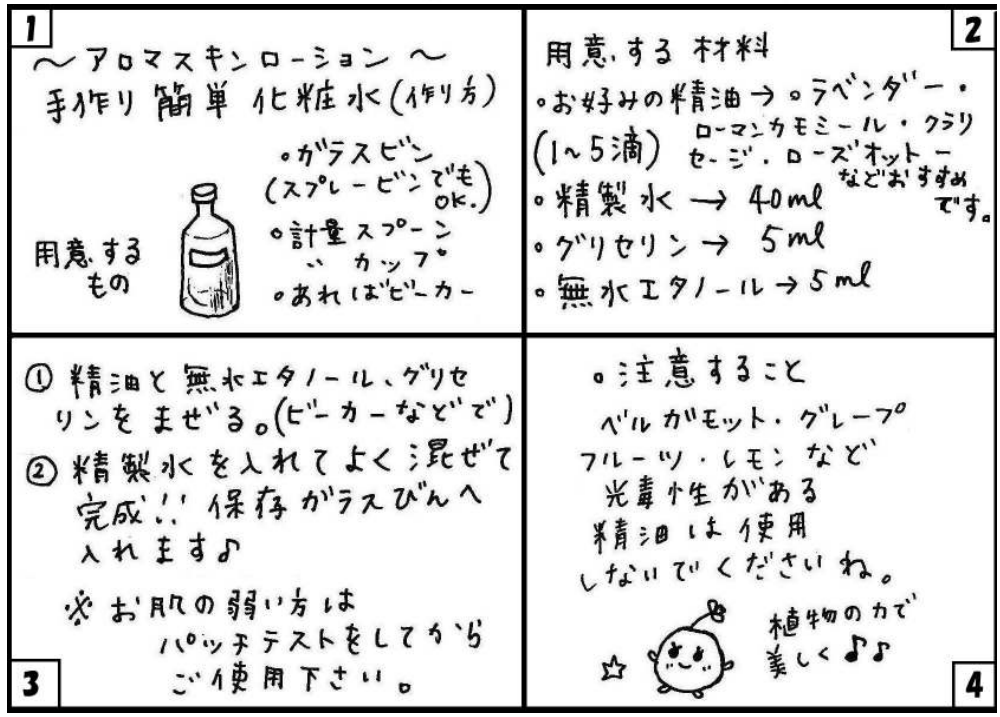 1
～アロマスキンローション～
手作り簡単化粧水(作り方)
・ガラスビン
(スプレービンでも
OK.)
・計量スプーン
〃 カップ
・あればビーカー
用意する
もの
2
用意する材料
・お好みの精油→・ラベンダー・
(1~5滴)
ローマンカモミール・クラリ
セージ・ローズオットー
などおすすめ
です。
・精製水→40ml
・グリセリン→5ml
・無水エタノール→5ml
①精油と無水エタノール、グリセ
リンをまぜる。(ビーカーなどで)
②精製水を入れてよく混ぜて
完成!!保存ガラスびんへ
入れます♪
※お肌の弱い方は
パッチテストをしてから
ご使用下さい。
3
。注意すること
ベルガモット・グレープ
フルーツ・レモンなど
光毒性がある
精油は使用
しないでくださいね。
植物の力で
美しく♪♪
4